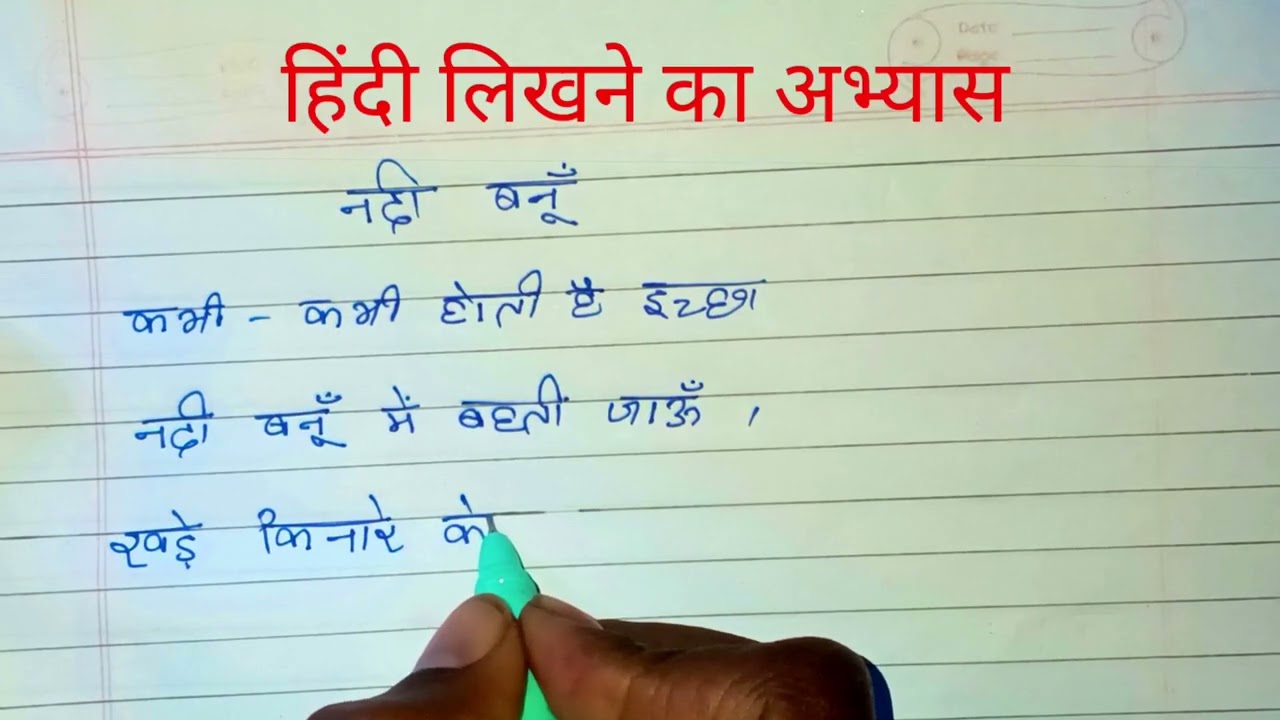 Date
Page
हिंदी लिखने का अभ्यास
नदी बनूँ
कभी - कभी होती है इच्छा
नदी बनूँ में बहती जाऊँ ,
खड़े किनारे के